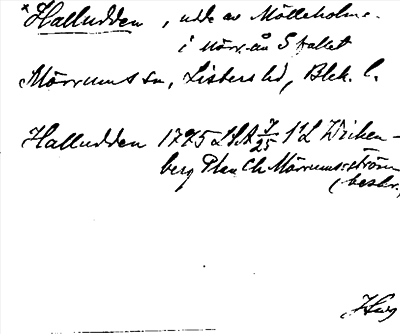 *Halludden, udde av Mölleholme.
i Mörr.ån S
Mörrums sn, Listers hd, Blek. l.
Halludden 1775 LSA 7/25 1:2 Wirken-
berg Plan Ch Mörrumsström
(beskr.)